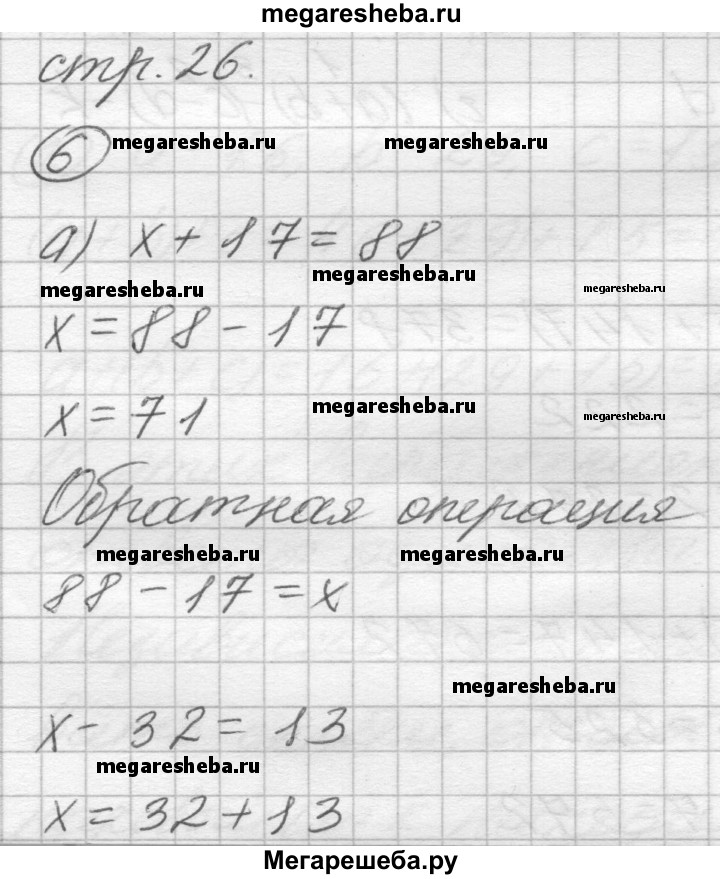 megaresheba.ru
стр. 26.
6 megaresheba.ru megaresheba.ru
а) x + 17 = 88
megaresheba.ru megaresheba.ru megaresheba.ru
x = 88 - 17
x = 71 megaresheba.ru megaresheba.ru
Обратная операция
megaresheba.ru megaresheba.ru
88 - 17 = x
megaresheba.ru
x - 32 = 13
megaresheba.ru
x = 32 + 13
Мегарешеба.ру